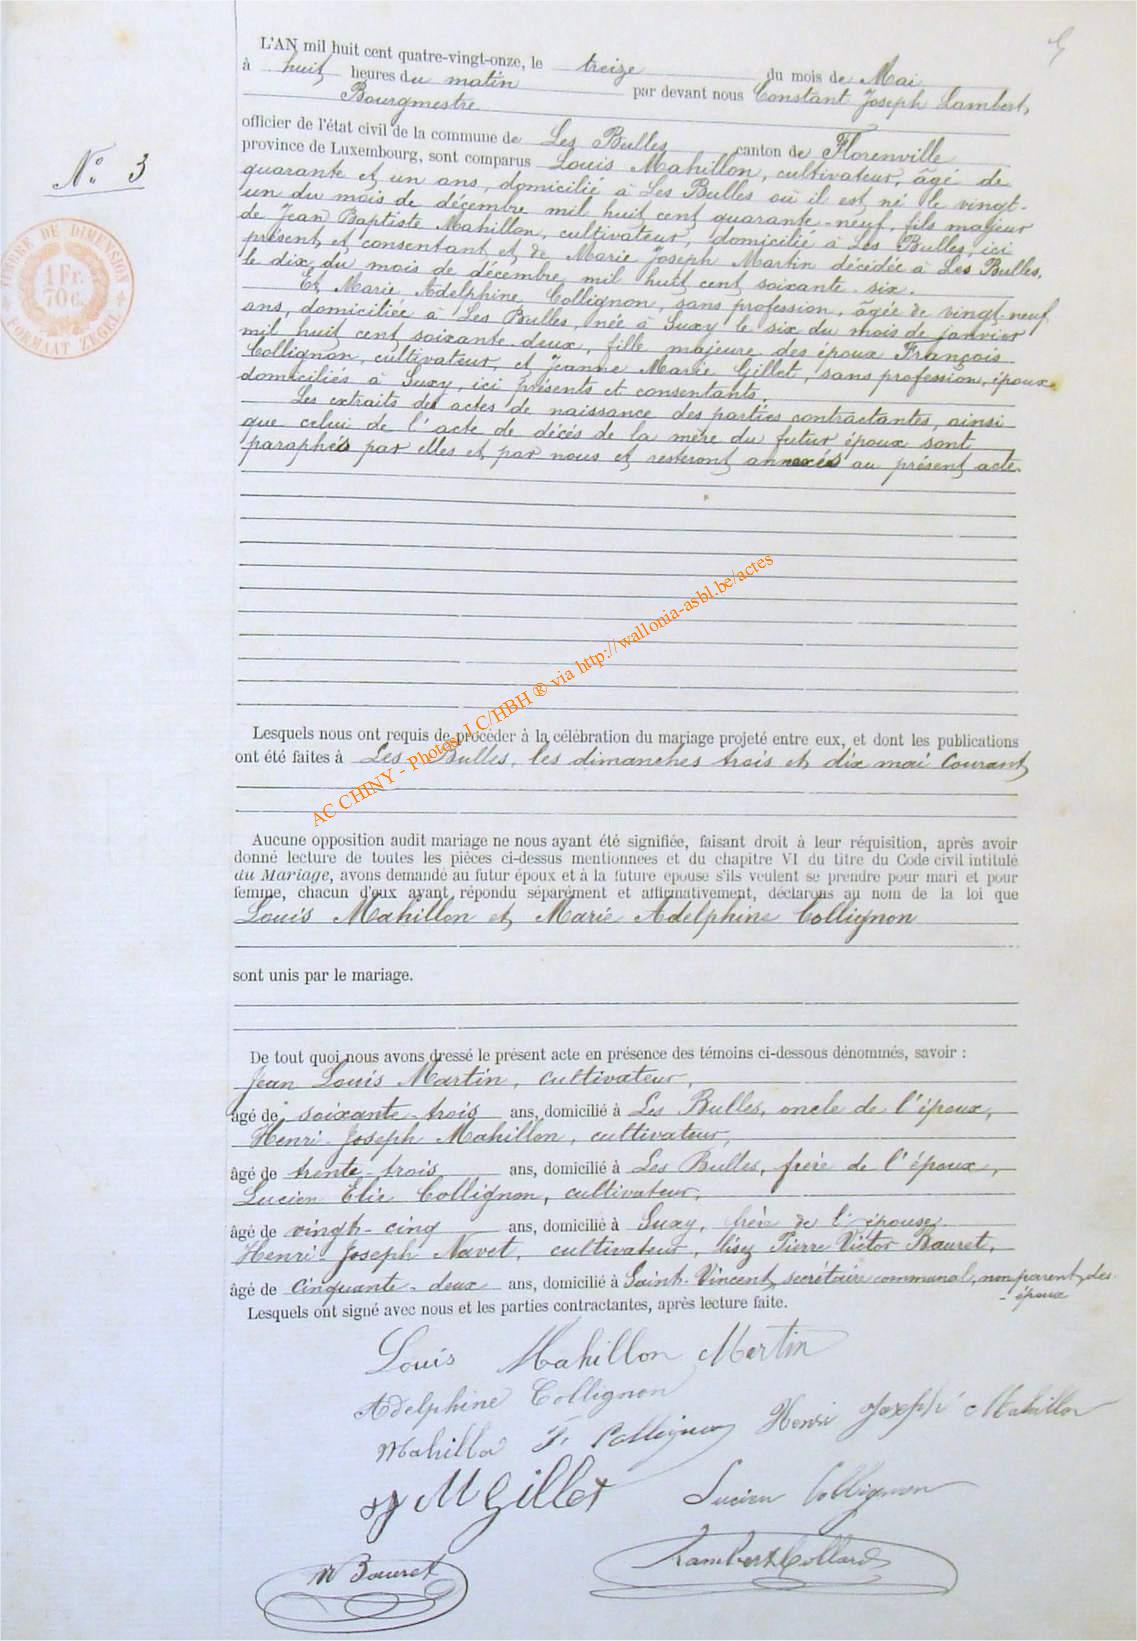 5
L'AN mil huit cent quatre-vingt-onze, le treize du mois de Mai
à huit heures du matin par devant nous Constant Joseph Lambert,
Bourgmestre
officier de l'état civil de la commune de Les Bulles canton de Florenville
province de Luxembourg, sont comparus Louis Mahillon, cultivateur, âgé de
quarante et un ans, domicilié à Les Bulles où il est né le vingt-
un du mois de décembre mil huit cent quarante-neuf, fils majeur
de Jean Baptiste Mahillon, cultivateur, domicilié à Les Bulles, ici
présent et consentant et de Marie Joseph Martin décédée à Les Bulles,
le dix du mois de décembre mil huit cent soixante-six.
Et Marie Adelphine Collignon, sans profession, âgée de vingt-neuf
ans, domiciliée à Les Bulles, née à Suxy le six du mois de janvier
mil huit cent soixante-deux, fille majeure des époux François
Collignon, cultivateur, et Jeanne Marie Gillet, sans profession, époux
domiciliés à Suxy, ici présents et consentants.
Les extraits des actes de naissance des parties contractantes, ainsi
que celui de l'acte de décés de la mère du futur époux sont
paraphés par elles et par nous et resteront annexés au présent acte.
N° 3
TIMBRE DE DIMENSION
1 Fr.
70 c.
FORMAAT ZEGEL
Lesquels nous ont requis de procéder à la célébration du mariage projeté entre eux, et dont les publications
ont été faites à Les Bulles, les dimanches trois et dix mai courant
AC CHINY - Photos J C/HBH ® via http://wallonia-asbl.be/actes
Aucune opposition audit mariage ne nous ayant été signifiée, faisant droit à leur réquisition, après avoir
donné lecture de toutes les pièces ci-dessus mentionnees et du chapitre VI du titre du Code civil intitulé
du Mariage, avons demandé au futur époux et à la future epouse s'ils veulent se prendre pour mari et pour
femme, chacun d'eux ayant répondu séparément et affirmativement, déclarons au nom de la loi que
Louis Mahillon et Marie Adelphine Collignon
sont unis par le mariage.
De tout quoi nous avons dressé le présent acte en présence des témoins ci-dessous dénommés, savoir :
Jean Louis Martin, cultivateur,
âgé de soixante-trois ans, domicilié à Les Bulles, oncle de l'époux,
Henri-Joseph Mahillon, cultivateur,
âgé de trente-trois ans, domicilié à Les Bulles, frère de l'époux,
Lucien Élie Collignon, cultivateur,
âgé de vingt-cinq ans, domicilié à Suxy, frère de l'épouse,
Henri-Joseph Navet, cultivateur, lisez Pierre Victor Bauret,
âgé de cinquante-deux ans, domicilié à Saint-Vincent, secrétaire communal, non parent des
époux
Lesquels ont signé avec nous et les parties contractantes, après lecture faite.
Louis Mahillon Martin
Adelphine Collignon
Mahillon F. Collignon Henri Joseph Mahillon
J M Gillet Lucien Collignon
Bauret Lambert Collard